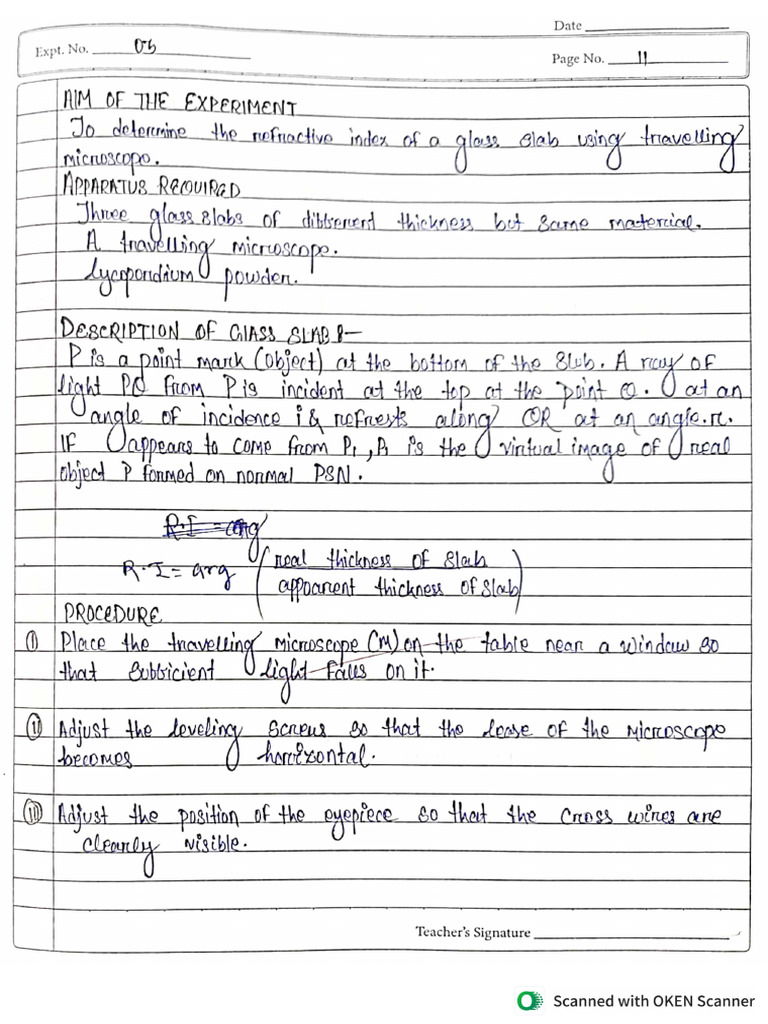 Date
Expt. No. 05
Page No. 11
AIM OF THE EXPERIMENT
To determine the refractive index of a glass slab using travelling
microscope.
APPARATUS REQUIRED
Three glass slabs of different thickness but same material.
A travelling microscope.
Lycopondium powder.
DESCRIPTION OF GlASS SLAB :-
P is a point mark (object) at the bottom of the slub. A ray of
light PO from P is incident at the top at the point O. at an
angle of incidence i & refrests along OR at an angle.r.
IF appears to come from P1, P1 is the virtual image of real
object P formed on normal PSN.
R.I = avg
R.I = avg (real thickness of slab
appoarent thickness of slab)
PROCEDURE
(I) Place the travelling microscope (M) on the table near a window so
that sufficient light falls on it.
(II) Adjust the leveling screws so that the base of the microscope
becomes horizontal.
(III) Adjust the position of the eyepiece so that the cross wires are
clearly visible.
Teacher's Signature
Scanned with OKEN Scanner